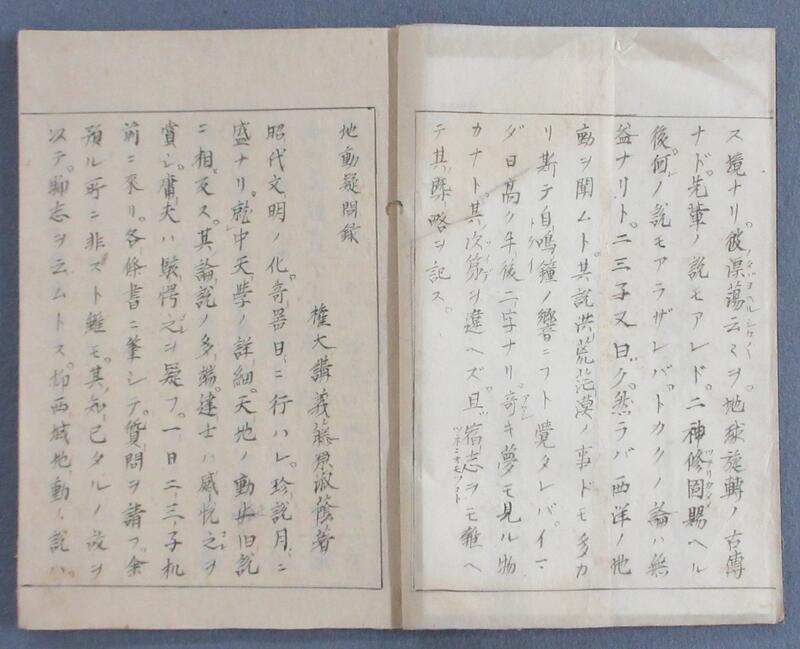 ス境ナリ。彼漂蕩云々ヲ。地球旋轉ノ古傳
ナド。先輩ノ説モアレド。二神修固賜ヘル
後。何ノ説モアラザレバ。トカクノ論ハ無
益ナリト。二三子又曰ク。然ラバ西洋ノ地
動ヲ聞ムト。其説洪荒茫漠ノ事ドモ多カ
リ斯テ自鳴鐘ノ響ニフト覺タレバ。イマ
ダ日高ノ午後二字ナリ。奇キ夢モ見ル物
カナト。其次第ヲ違ヘズ。且宿志ヲモ雜ヘ
テ其槩略ヲ記ス。
地動疑問録
權大講義藤原淑蔭著
昭代文明ノ化。奇器日ニ行ハレ。珍説月ニ
盛ナリ。就中天學ノ詳細。天地ノ動坐旧説
ニ相反ス。其論説ノ多端。達士ハ感悦之ヲ
賞シ。庸夫ハ駭愕之ヲ疑フ。一日二三子机
前ニ來リ。各條書ニ筆シテ。質問ヲ請フ。余
預ル所ニ非スト雖モ。其知己タルノ故ヲ
以テ。聊志ヲ云ムトス。抑西域地動ノ説ハ。